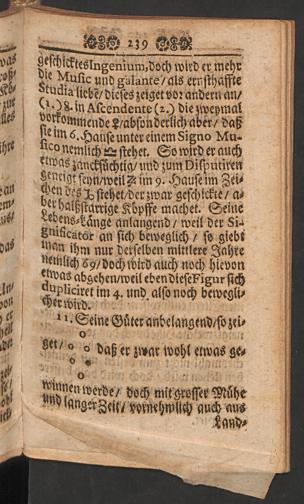 239
geschicktes Ingenium, doch wird er mehr
die Music und galante / als ernsthaffte
Studia liebe / dieses zeiget vor andern an /
(1.) 8. in Ascendente (2.) die zweymal
vorkommende / absonderlich aber / daß
sie im 6. Hause unter einem Signo Mu-
sico nemlich ♎ stehet. So wird er auch
etwas zancksüchtig / und zum Disputiren
geneigt seyn / weil im 9. Hause im Zei-
chen des stehet / der zwar geschickte / a-
ber halsstarrige Köpffe machet. Seine
Lebens-Länge anlangend / weil der Si-
gnificator an sich beweglich / so giebt
man ihm nur derselben mittlere Jahre
nemlich 69 / doch wird auch noch hievon
etwas abgehen / weil eben diese Figur sich
dupliciret im 4. und also noch bewegli-
cher wird.
11. Seine Güter anbelangend / so zei-
get / daß er zwar wohl etwas ge-
winnen werde / doch mit grosser Mühe
und langer Zeit / vornehmlich auch aus
Land-